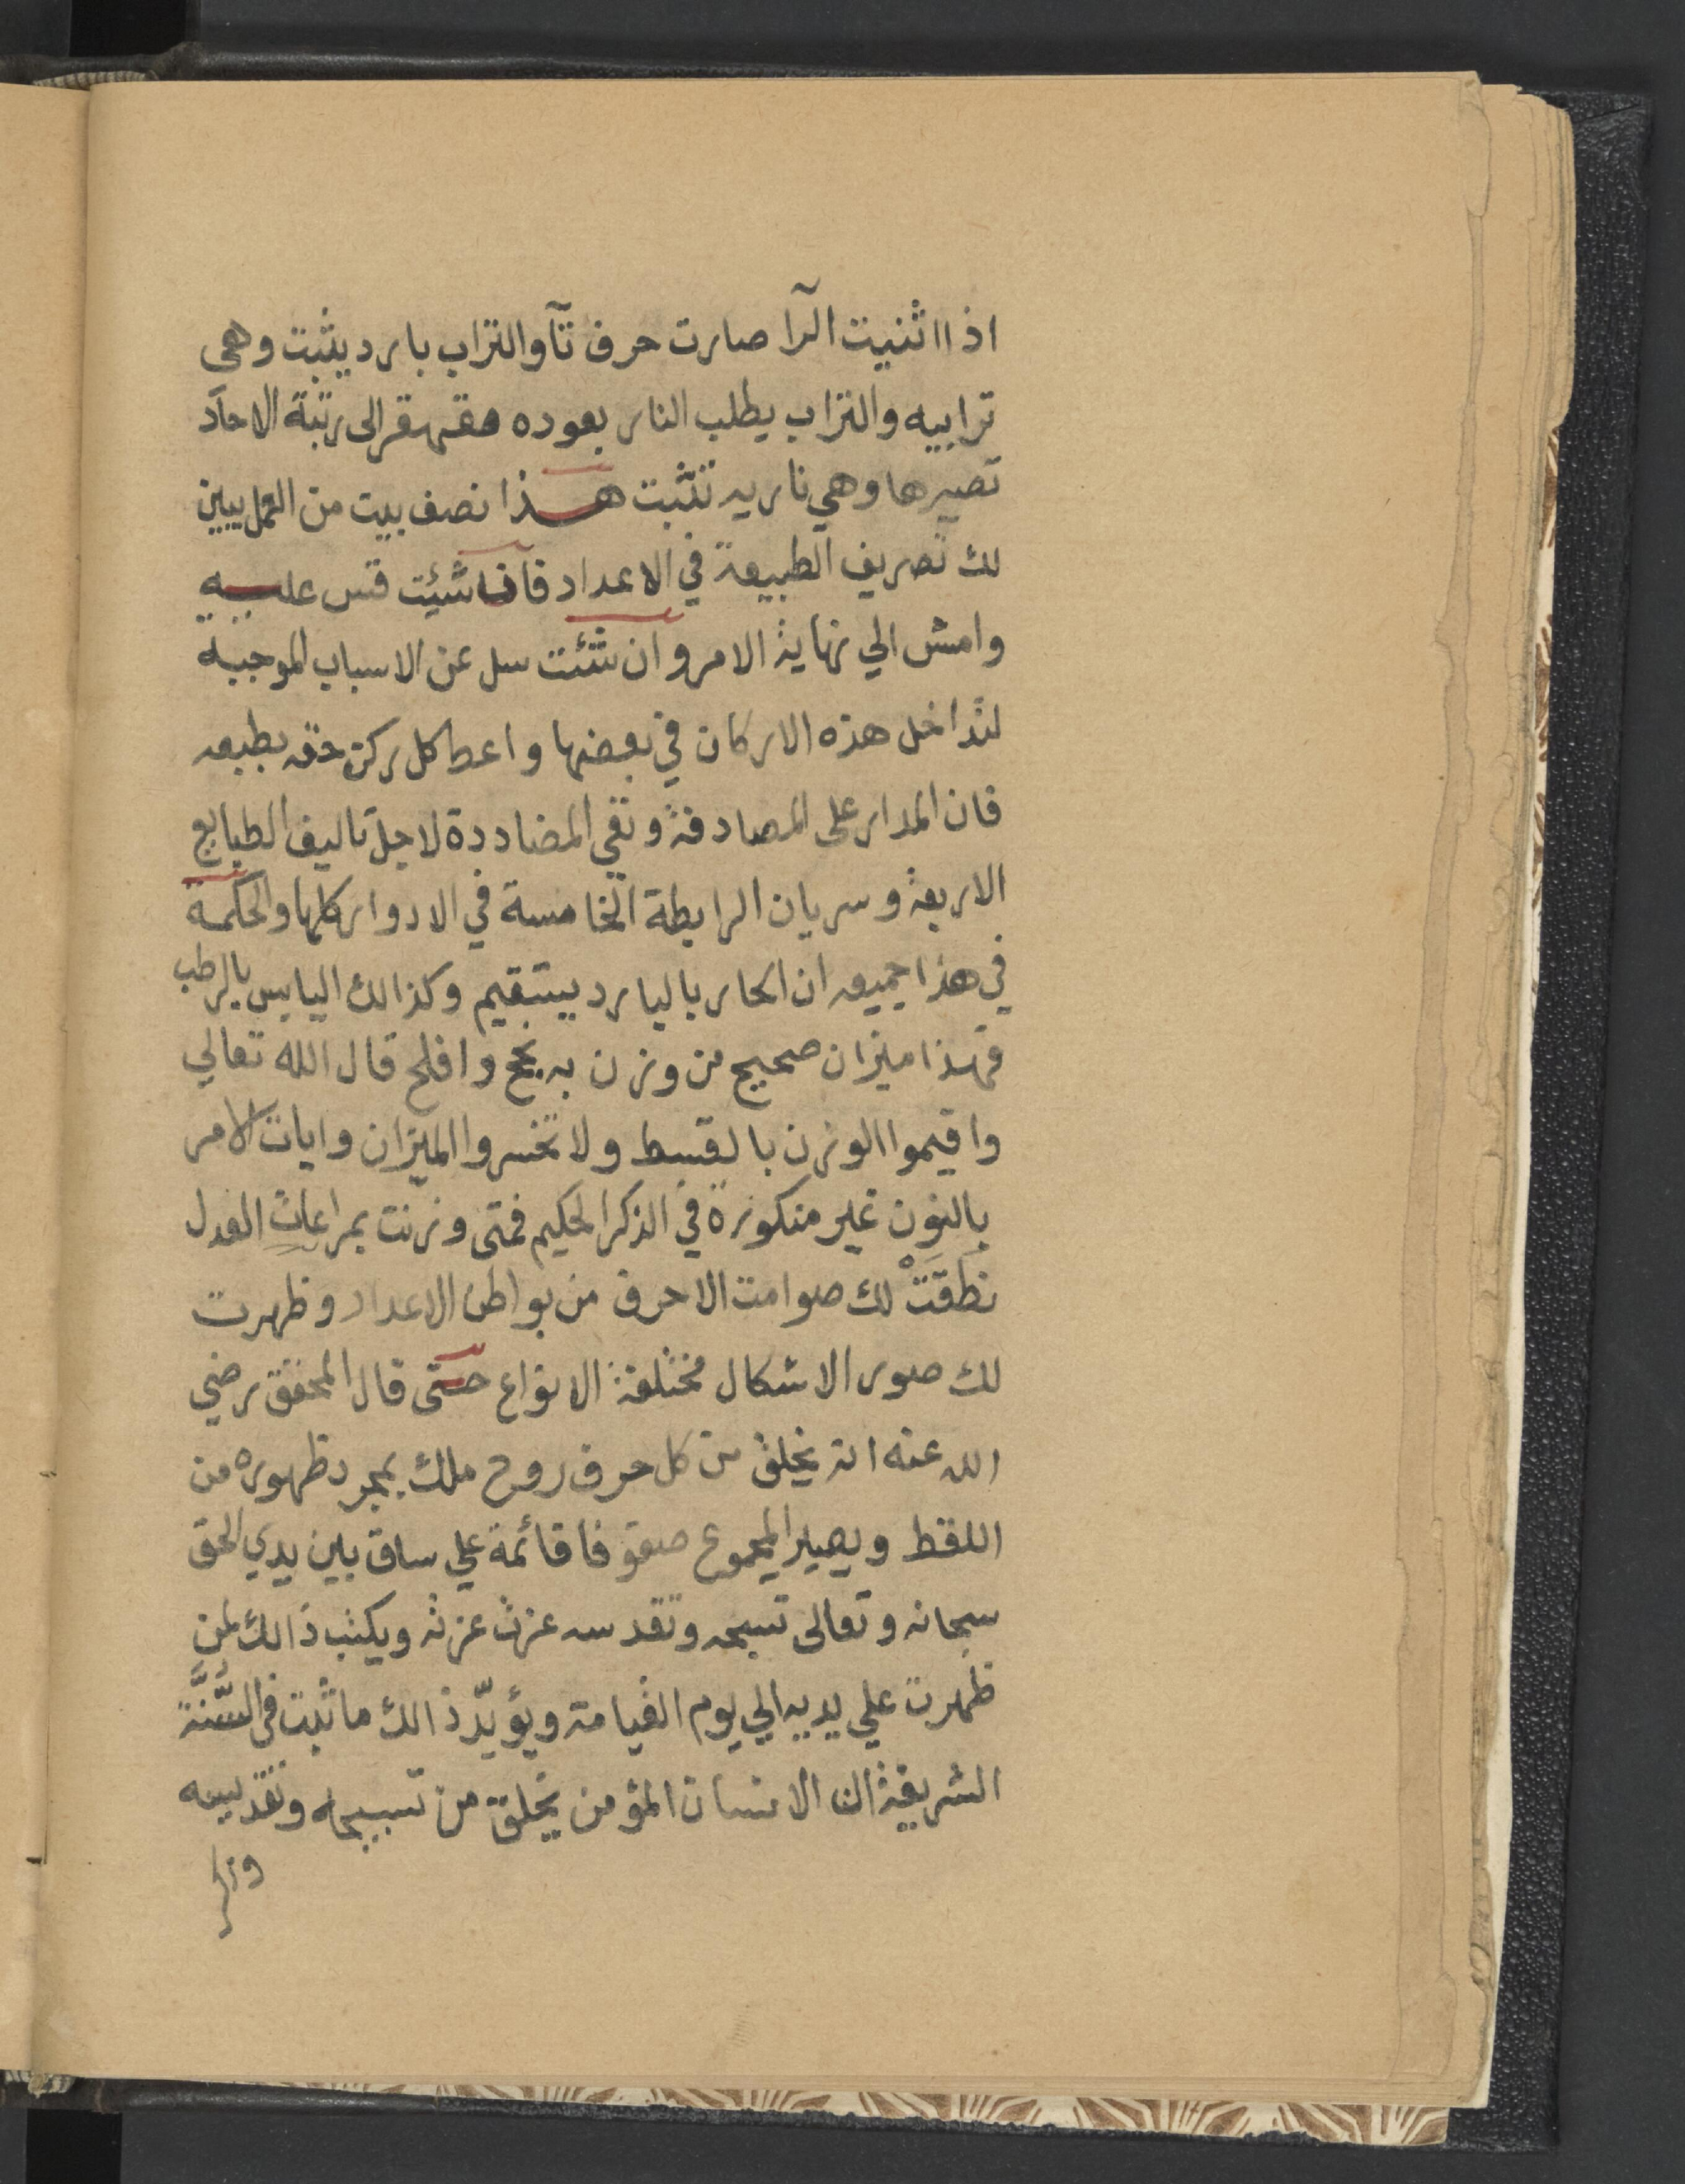 اذا اثنيت الرا صارت حرف تآ والتراب بارد يثبت وهى
ترابيه والتراب يطلب النار بعوده هقهقر الى رتبة الاحآد
تصيرها وهي ناريه تثبت هذا نصف بيت من العمل يبين
لك تصريف الطبيعة في الاعداد فان شئيت قس عليه
وامش الي نهاية الامر وان شئت سل عن الاسباب الموجبة
لتداخل هذه الاركان في بعضها واعط كل ركن حقه بطبعه
فان المدار على المصادفة ونفي المضاددة لاجل تاليف الطبايع
الاربعة وسريان الرابطة الخامسة في الادوار كلها والحكمة
في هذا جميعه ان الحار بالبارد يستقيم وكذالك اليابس بالرطب
فهذا ميزان صحيح من وزن به نجح وافلح قال الله تعالي
واقيموا الوزن بالقسط ولا تخسروا الميزان وايات الامر
بالوزن غير منكورة في الذكر الحكيم فمتى وزنت بمراعات العدل
نطقَتْ لك صوامت الاحرف من بواطن الاعداد وظهرت
لك صور الاشكال مختلفة الانواع حتى قال المحقق رضي
الله عنه انه يخلق من كل حرف روح ملك بمجرد ظهوره من
اللفظ ويصير المجموع صفوفا قائمة علي ساق بين يدي الحق
سبحانه وتعالى تسبحه وتقدسه عزت عزته ويكتب ذالك لمن
ظهرت علي يديه الي يوم القيامة ويؤيّد ذالك ما ثبت في السُّنَّة
الشريفة ان الانسان المؤمن يخلق من تسبيحه وتقديسه
وذكر